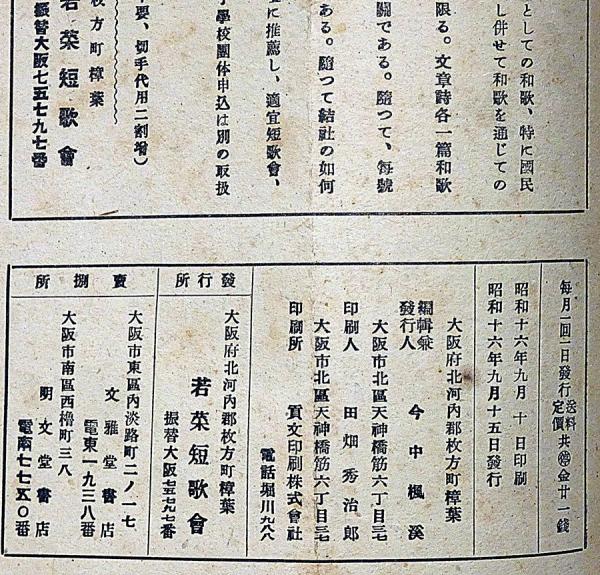 としての和歌、特に國民
し併せて和歌を通じての
限る。文章詩各一篇和歌
關である。隨つて、每號
ある。隨つて結社の如何
に推薦し、適宜短歌會、
學校團体申込は別の取扱
要、切手代用二割增)
枚方町樟葉
若菜短歌會
振替大阪七五七九七番
每月一回一日發行 定價 送料共 金廿一錢
昭和十六年九月 十日印刷
昭和十六年九月十五日發行
大阪府北河內郡枚方町樟葉
編輯兼發行人 今中楓溪
大阪市北區天神橋筋六丁目三七
印刷人 田畑秀治郎
大阪市北區天神橋筋六丁目三七
印刷所 貢文印刷株式會社
電話堀川九八八
發行所
大阪府北河內郡枚方町樟葉
若菜短歌會
振替大阪七五七九七番
賣捌所
大阪市東區內淡路町二ノ一七
文雅堂書店
電東一九三八番
大阪市南區西櫓町三八
明文堂書店
電南七七五〇番